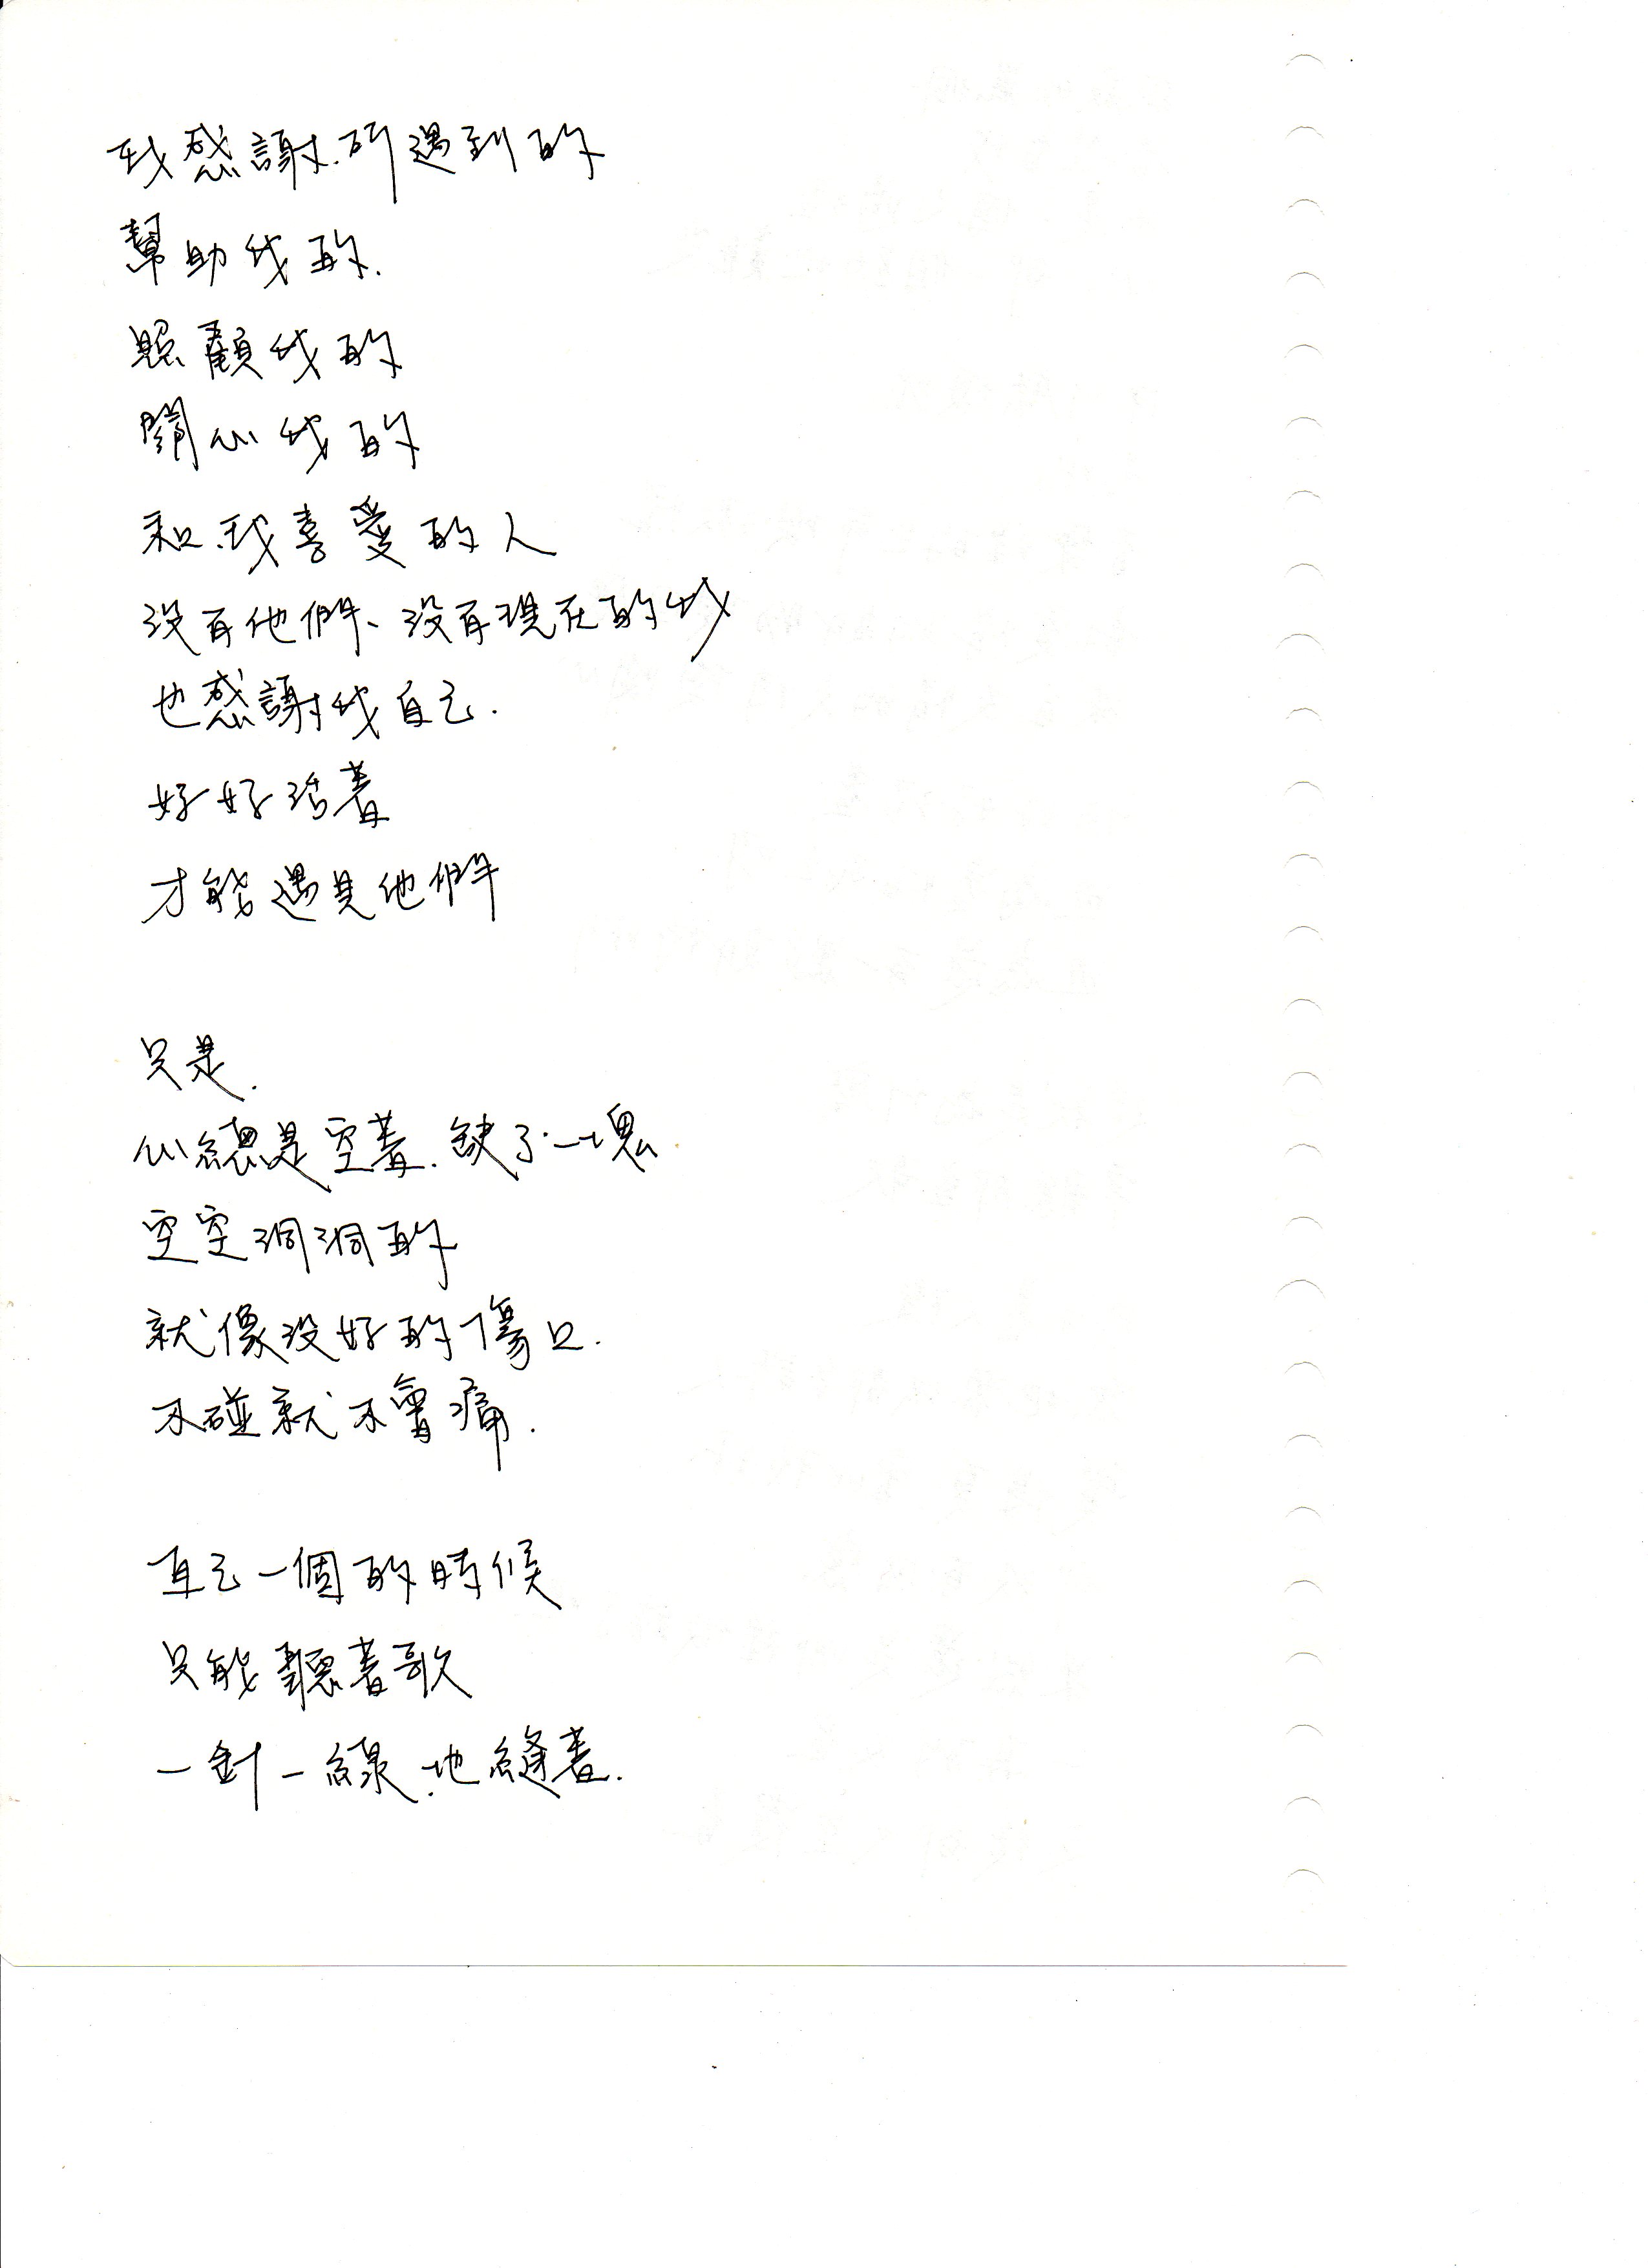 我感謝.所遇到的
幫助我的.
照顧我的
關心我的
和.我喜愛的人
沒有他們、沒有現在的我
也感謝我自己.
好好活著
才能遇見他們
只是.
心總是空著.缺了一塊
空空洞洞的
就像沒好的傷口.
不碰就不會痛.
自己一個的時候
只能聽著歌
一針一線.地縫著.